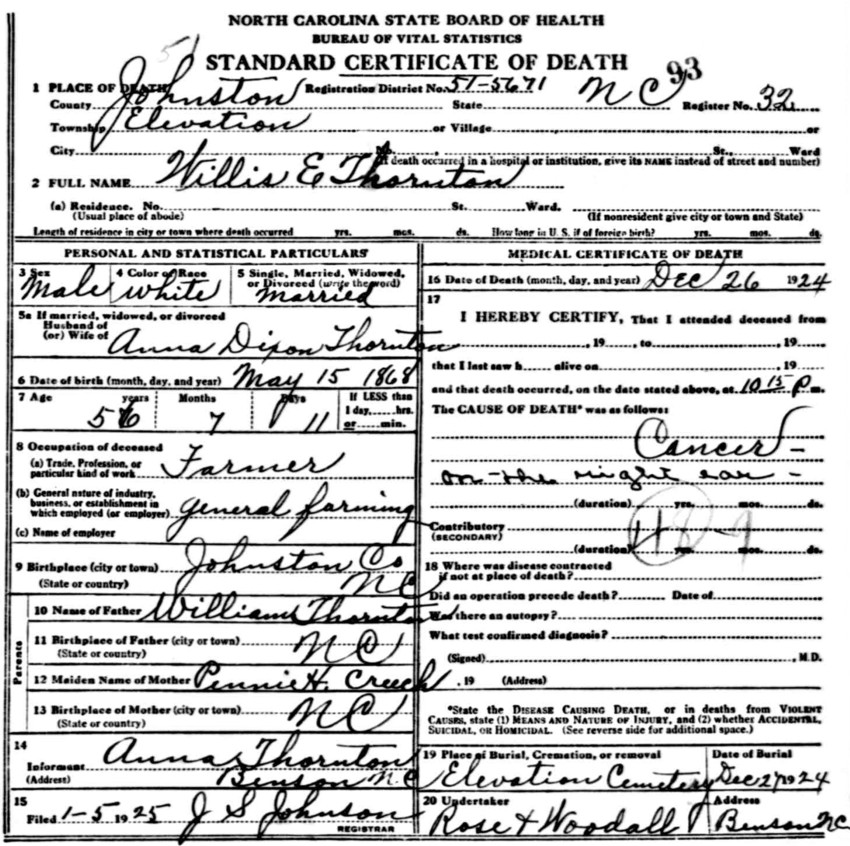 51
NORTH CAROLINA STATE BOARD OF HEALTH
BUREAU OF VITAL STATISTICS
STANDARD CERTIFICATE OF DEATH
93
1 PLACE OF DEATH Registration District No. 51-5671 NC
County Johnston State Register No. 32
Township Elevation or Village or
City No. , St., Ward
(If death occurred in a hospital or institution, give its NAME instead of street and number)
2 FULL NAME Willis E Thornton
(a) Residence. No. St. Ward.
(Usual place of abode) (If nonresident give city or town and State)
Length of residence in city or town where death occurred yrs. mos. ds. How long in U. S. if of foreign birth? yrs. mos. ds.
PERSONAL AND STATISTICAL PARTICULARS
3 Sex 4 Color or Race 5 Single, Married, Widowed,
or Divorced (write the word)
Male white Married
5a If married, widowed, or divorced
Husband of
(or) Wife of Anna Dixon Thornton
6 Date of birth (month, day, and year) May 15 1868
7 Age years Months Days If LESS than
1 day, hrs.
56 7 11 or min.
8 Occupation of deceased
(a) Trade, Profession, or
particular kind of work Farmer
(b) General nature of industry,
business, or establishment in
which employed (or employer) general farming
(c) Name of employer
9 Birthplace (city or town) Johnston Co
(State or country) NC
Parents
10 Name of Father William Thornton
11 Birthplace of Father (city or town)
(State or country) NC
12 Maiden Name of Mother Pennie H. Creech
13 Birthplace of Mother (city or town)
(State or country) NC
14
Informant Anna Thornton
(Address) Benson NC
15
Filed 1-5 1925 J S Johnson
REGISTRAR
MEDICAL CERTIFICATE OF DEATH
16 Date of Death (month, day, and year) Dec 26 1924
17
I HEREBY CERTIFY, That I attended deceased from
, 19 , to , 19
that I last saw h alive on , 19
and that death occurred, on the date stated above, at 10 15 P m.
The CAUSE OF DEATH* was as follows:
Cancer -
on the right ear -
(duration) yrs. mos. ds.
Contributory
(SECONDARY)
(duration) yrs. mos. ds.
18 Where was disease contracted
if not at place of death?
Did an operation precede death? Date of
Was there an autopsy?
What test confirmed diagnosis?
(Signed) , M.D.
, 19 (Address)
*State the DISEASE CAUSING DEATH, or in deaths from VIOLENT
CAUSES, state (1) MEANS AND NATURE OF INJURY, and (2) whether ACCIDENTAL,
SUICIDAL, OR HOMICIDAL. (See reverse side for additional space.)
19 Place of Burial, Cremation, or removal Date of Burial
Elevation Cemetery Dec 27 1924
20 Undertaker Address
Rose & Woodall Benson NC